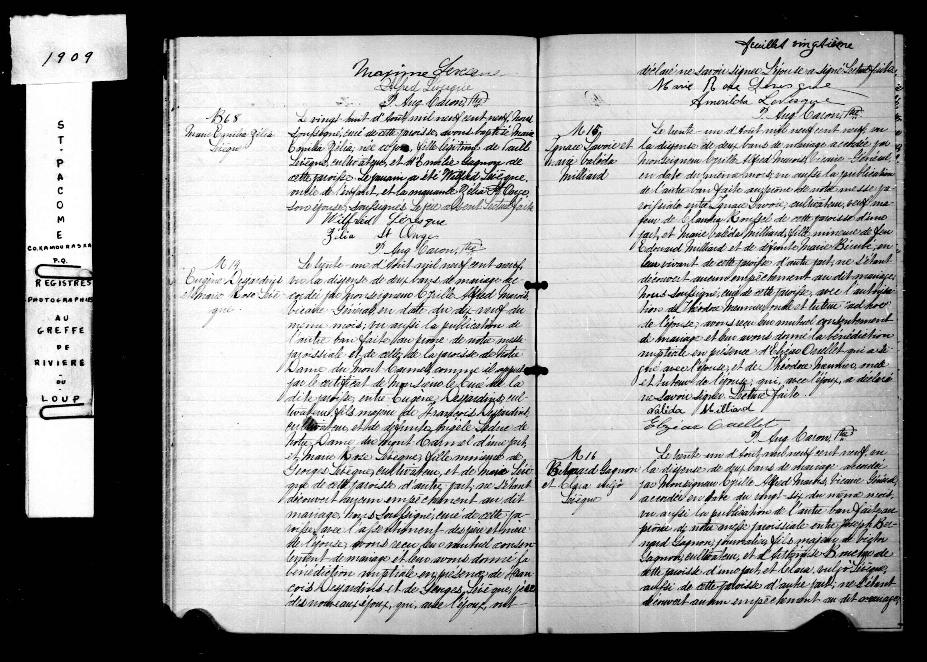 1909
ST. PACOME
CO. KAMOURASKA
P.Q.
REGISTRES
PHOTOGRAPHIÉS
AU
GREFFE
DE
RIVIERE
DU
LOUP
Maxime
P. Aug. Caron, Ptre
B 68
Marie Emilia Zélia
Le vingt huit d'août mil neuf cent neuf, Nous
soussigné, curé de cette paroisse, avons baptisé Marie
Emilia Zélia, née ce jour, fille légitime de
cultivateur, et d'Emélie Gagnon de
cette paroisse. Le parrain a été Wilfred Lévesque,
oncle de l'enfant, et la marraine Zélia St Onge,
son épouse, soussignés. Le père absent. Lecture faite
Wilfrid Lévesque
Zélia St Onge
P. Aug. Caron, Ptre
M 14
Eugène Desjardins
et Marie Rose Lévesque
Le trente-un d'août mil neuf cent neuf,
vu la dispense de deux bans de mariage accordée
par Monseigneur Cyrille Alfred Marois,
vicaire Général, en date du dix neuf du
même mois, vu aussi la publication de
l'autre ban faite au prône de notre messe
paroissiale et de celle de la paroisse de Notre
Dame du Mont Carmel, comme il appert
par le certificat de le Curé de la
dite paroisse, entre Eugène Desjardins, cultivateur
fils majeur de François Desjardins,
cultivateur, et de défunte Angèle de
Notre Dame du Mont Carmel d'une part,
et Marie Rose Lévesque, fille mineure de
Georges Lévesque, cultivateur, et de Marie
de cette paroisse d'autre part, ne s'étant
découvert aucun empêchement au dit
mariage, Nous, soussigné, curé de cette paroisse
avec l'assentiment des père et mère
de l'épouse, avons reçu leur mutuel consentement
de mariage et leur avons donné la
bénédiction nuptiale en présence de François
Desjardins et de Georges Lévesque, pères
des nouveaux époux, qui, avec l'époux, ont
feuillet vingtième
déclaré ne savoir signer. L'épouse a signé. Lecture faite.
Marie Rose Lévesque
Amarilda Levesque
P. Aug. Caron, Ptre
M 15
Ignace Lavoie et
Maria Valida
Milliard
Le trente-un d'août mil neuf cent neuf, vu
la dispense de deux bans de mariage accordée par
Monseigneur Cyrille Alfred Marois, Vicaire Général,
en date du même mois, vu aussi la publication
de l'autre ban faite au prône de notre messe paroissiale
entre Ignace Lavoie, cultivateur, veuf majeur
de Claudia de cette paroisse d'une
part, et Marie Valida Milliard, fille mineure de feu
Edouard Milliard et de défunte Marie Bérubé, en
leur vivant de cette paroisse d'autre part, ne s'étant
découvert aucun empêchement au dit mariage,
Nous, soussigné, curé de cette paroisse, avec l'autorisation
de Théodore oncle et tuteur "ad hoc"
de l'épouse, avons reçu leur mutuel consentement
de mariage et leur avons donné la bénédiction
nuptiale en présence d'Elzéar Ouellet qui a signé
avec l'épouse, et de Théodore oncle
et tuteur de l'épouse, qui, avec l'époux, a déclaré
ne savoir signer. Lecture faite.
Valida Milliard
Elzéar Ouellet
P. Aug. Caron, Ptre
M 16
Gagnon
et Clara
Lévesque
Le trente-un d'août mil neuf cent neuf, vu
la dispense de deux bans de mariage accordée
par Monseigneur Cyrille Alfred Marois, Vicaire Général,
accordée en date du vingt-six du même mois,
vu aussi la publication de l'autre ban faite au
prône de notre messe paroissiale entre Joseph
Gagnon, journalier, fils majeur de
Gagnon, cultivateur, et d' de
cette paroisse d'une part et Clara Lévesque,
aussi de cette paroisse d'autre part, ne s'étant
découvert aucun empêchement au dit mariage,